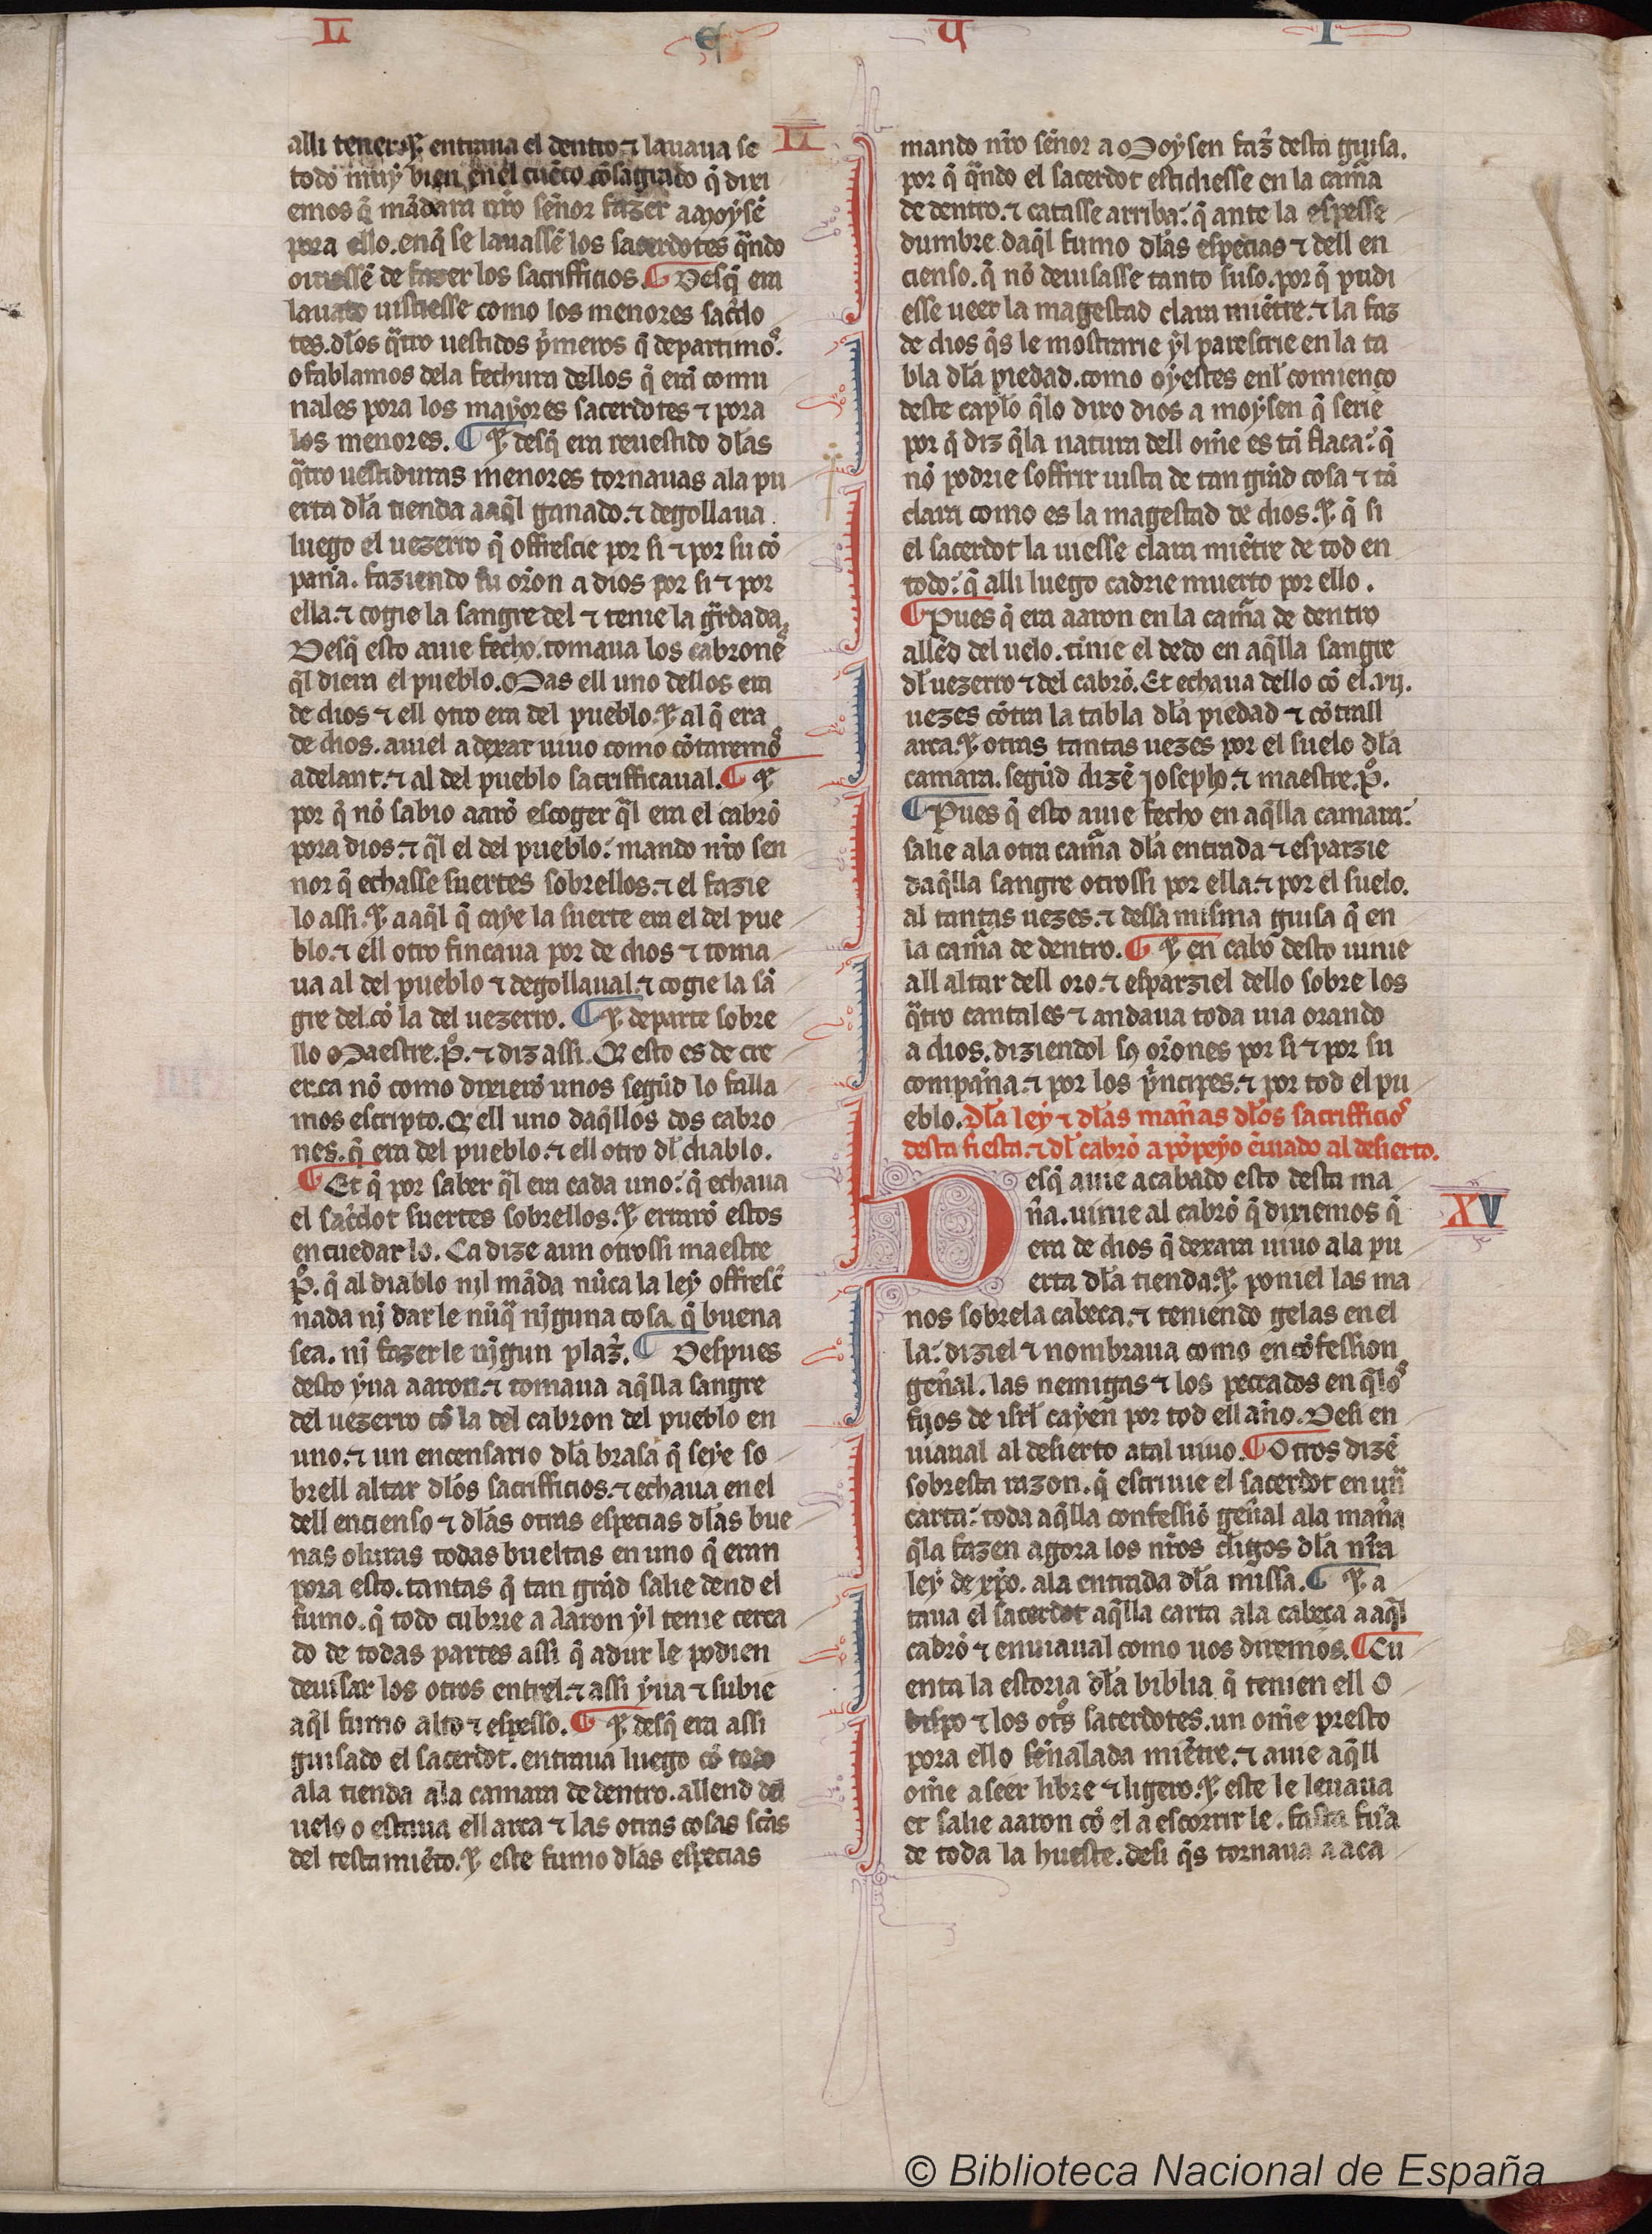 L E U I
alli tener. ⁊ entraua el dentro ⁊ lauaua se
todo muy bien en el cuẽco cõsagrado q̃ dixi
emos q̃ mãdara nr̃o señor fazer a moysẽ
pora ello. en q̃ se lauassẽ los sacerdotes qñdo
ouiessẽ de fazer los sacrifficios. ¶ Desq̃ era
lauado uistiesse como los menores sac̃do
tes. dl̃os q̃tro uestidos p̃meros q̃ departimos.
o fablamos dela fechura dellos q̃ erã comu
nales pora los mayores sacerdotes ⁊ pora
los menores. ¶ ⁊ desq̃ era reuestido dl̃as
q̃tro uestiduras menores tornauas ala pu
erta dl̃a tienda a aq̃l ganado. ⁊ degollaua
luego el uezerro q̃ offrescie por si ⁊ por su cõ
paña. faziendo su or̃on a dios por si ⁊ por
ella. ⁊ cogie la sangre del ⁊ tenie la gr̃dada.
Desq̃ esto auie fecho. tomaua los cabrones
q̃l diera el pueblo. Mas ell uno dellos era
de dios ⁊ ell otro era del pueblo. ⁊ al q̃ era
de dios. auiel a dexar uiuo como cõtaremos
adelant. ⁊ al del pueblo sacrifficaual. ¶ ⁊
por q̃ nõ sabio aarõ escoger q̃l era el cabrõ
pora dios. ⁊ q̃l el del pueblo. mando nr̃o sen
nor q̃ echasse suertes sobrellos. ⁊ el fazie
lo assi. ⁊ a aq̃l q̃ caye la suerte era el del pue
blo. ⁊ ell otro fincaua por de dios ⁊ toma
ua al del pueblo ⁊ degollaual. ⁊ cogie la sã
gre del. cõ la del uezerro. ¶ ⁊ departe sobre
llo Maestre. P̊. ⁊ diz assi. Q̃ esto es de cre
er. ca nõ como dixierõ unos segũd lo falla
mos escripto. Q̃ ell uno daq̃llos dos cabro
nes. q̃ era del pueblo. ⁊ ell otro dl̃ diablo.
¶ Et q̃ por saber q̃l era cada uno. q̃ echaua
el sac̃dot suertes sobrellos. ⁊ erraro estos
en cuedar lo. Ca dize aun otrossi maestre
P̊. q̃ al diablo nil mãda nũca la ley offresc̃
nada nj dar le nũq̃ njguna cosa q̃ buena
sea. nj fazer le njgun plaz̃. ¶ Despues
desto yua aaron. ⁊ tomaua aq̃lla sangre
del uezerro cõ la del cabron del pueblo en
uno. ⁊ un encensario dl̃a brasa q̃ seye so
brell altar dl̃os sacrifficios. ⁊ echaua en el
dell encienso ⁊ dl̃as otras especias dl̃as bue
nas oluras todas bueltas en uno q̃ eran
pora esto. tantas q̃ tan grãd salie dend el
fumo. q̃ todo cubrie a Aaron yl tenie cerca
do de todas partes assi q̃ adur le podien
deuisar los otros entrel. ⁊ assi yua ⁊ subie
aq̃l fumo alto ⁊ espesso. ¶ ⁊ desq̃ era assi
guisado el sacerdot. entraua luego cõ todo
ala tienda ala camara de dentro. allend del
uelo o estaua ell arca ⁊ las otras cosas sc̃as
del testamiẽto. ⁊ este fumo dl̃as especias
mando nr̃o señor a Moysen faz̃ desta guisa.
por q̃ qñdo el sacerdot estidiesse en la cam̃a
de dentro. ⁊ catasse arriba. q̃ ante la espesse
dumbre daq̃l fumo dl̃as especias ⁊ dell en
cienso. q̃ nõ deuisasse tanto suso. por q̃ pudi
esse ueer la magestad clara miẽtre. ⁊ la faz
de dios q̃s le mostrarie yl parescrie en la ta
bla dl̃a piedad. como oyestes enl̃ comienço
deste cap̃lo q̃lo dixo dios a moysen q̃ serie
por q̃ diz q̃la natura dell om̃e es tã flaca. q̃
nõ podrie soffrir uista de tan grãd cosa ⁊ tã
clara como es la magestad de dios. ⁊ q̃ si
el sacerdot la uiesse clara miẽtre de tod en
todo. q̃ alli luego cadrie muerto por ello.
¶ Pues q̃ era aaron en la cam̃a de dentro
allẽd del uelo. tinie el dedo en aq̃lla sangre
dl̃ uezerro ⁊ del cabrõ. Et echaua dello cõ el. vij.
uezes cõtra la tabla dl̃a piedad ⁊ cõtrall
arca. ⁊ otras tantas uezes por el suelo dl̃a
camara. segũd dizẽ Josepho. ⁊ maestre. P̊.
¶ Pues q̃ esto auie fecho en aq̃lla camara.
salie ala otra cam̃a dl̃a entrada ⁊ esparzie
daq̃lla sangre otrossi por ella. ⁊ por el suelo.
al tantas uezes. ⁊ dessa misma guisa q̃ en
la cam̃a de dentro. ¶ ⁊ en cabo desto uinie
all altar dell oro. ⁊ esparziel dello sobre los
q̃tro cantales ⁊ andaua toda uia orando
a dios. diziendol sꝯ or̃ones por si ⁊ por su
compaña. ⁊ por los p̃ncipes. ⁊ por tod el pu
eblo. Dl̃a ley ⁊ dl̃as mañas dl̃os sacrifficios
desta fiesta. ⁊ dl̃ cabrõ apõpeyo ẽuiado al desierto.
XV
Desq̃ auie acabado esto desta ma
ñra. uinie al cabrõ q̃ dixiemos q̃
era de dios q̃ dexara uiuo ala pu
erta dl̃a tienda. ⁊ poniel las ma
nos sobre la cabeça. ⁊ teniendo gelas en el
la. diziel ⁊ nombraua como en cõfession
geñal. las nemigas ⁊ los peccados en q̃los
fijos de isrl̃ cayen por tod ell año. Desi en
uiaual al desierto atal uiuo. ¶ Otros dizẽ
sobresta razon. q̃ escriuie el sacerdot en un̄a
carta. toda aq̃lla confessiõ geñal ala mañra
q̃la fazen agora los nr̃os cl̃igos dl̃a nr̃a
ley de xp̃o. ala entrada dl̃a missa. ¶ ⁊ a
taua el sacerdot aq̃lla carta ala cabeça a aq̃l
cabrõ ⁊ enuiaual como uos diremos. ¶ Cu
enta la estoria dl̃a biblia q̃ tenien ell O
bispo ⁊ los ot̃os sacerdotes. un om̃e presto
pora ello señalada miẽtre. ⁊ auie aq̃ll
om̃e a seer libre ⁊ ligero. ⁊ este le leuaua
et salie aaron cõ el a escorrir le. fasta fuera
de toda la hueste. desi q̃s tornaua a aca
© Biblioteca Nacional de España